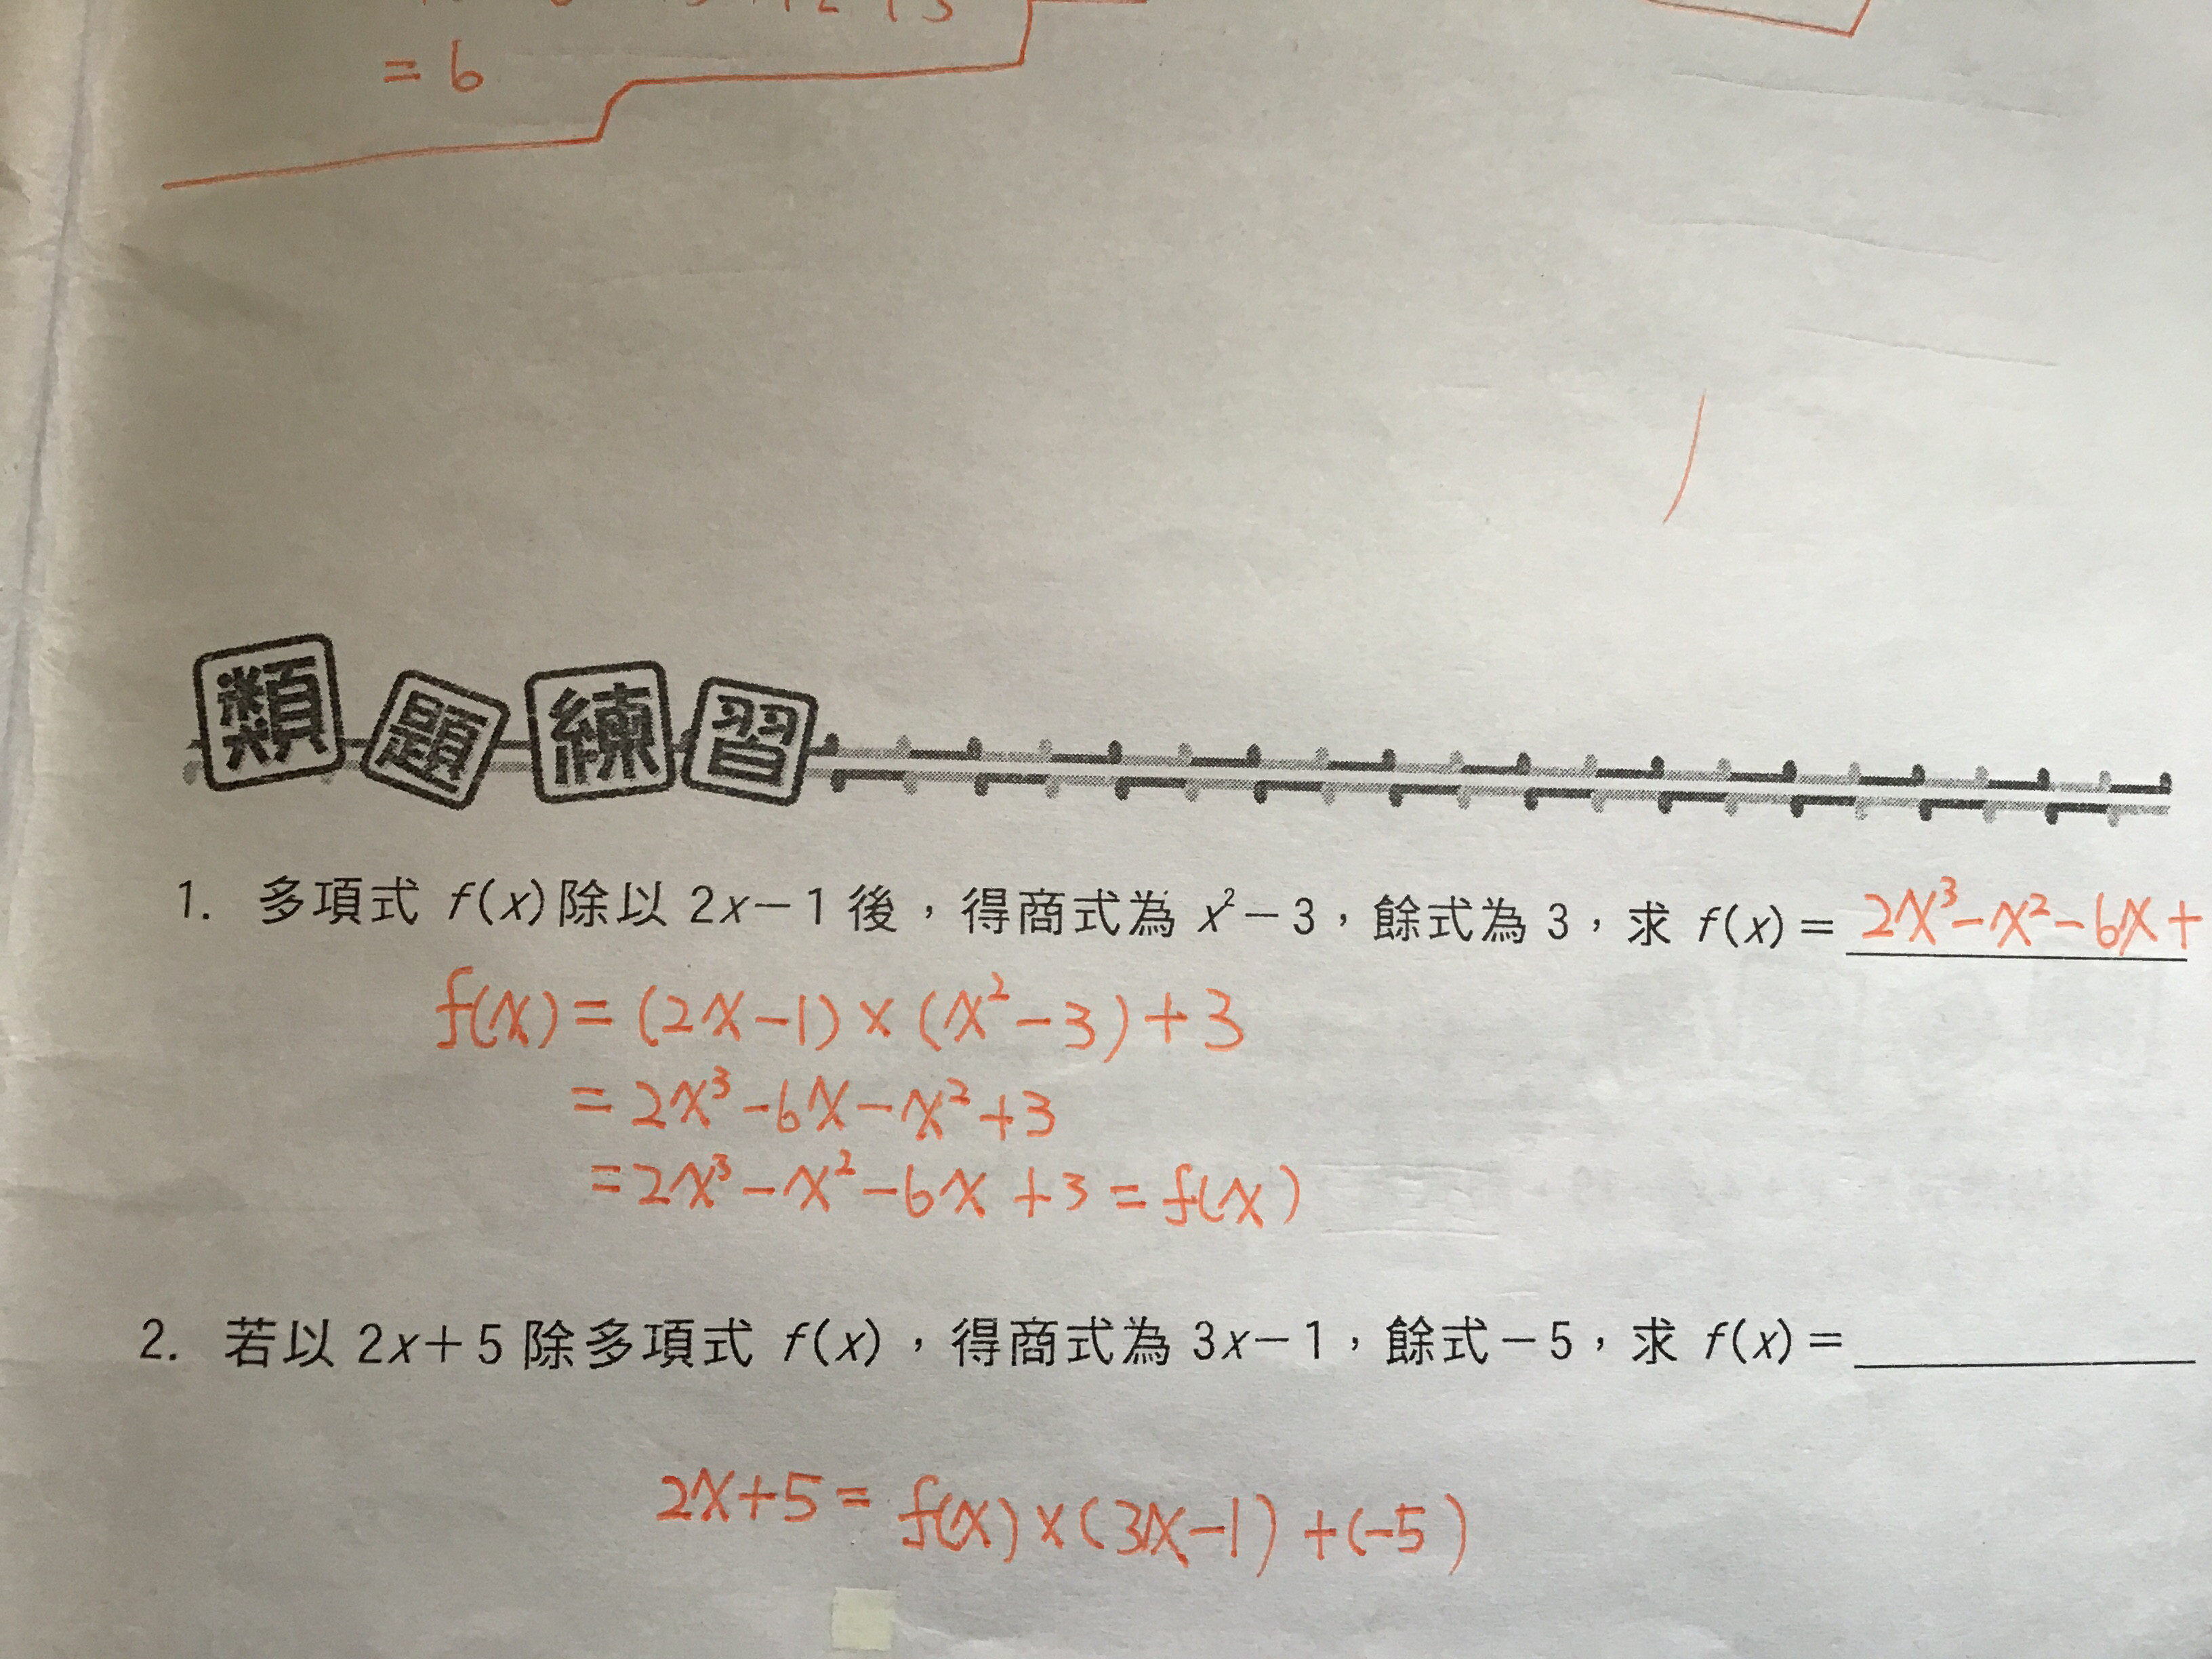 = 6
類題練習
1. 多項式 f(x)除以 2x－1 後，得商式為 x²－3，餘式為 3，求 f(x)＝ 2x³－x²－6x＋
f(x) = (2x－1) × (x²－3)＋3
= 2x³－6x－x²＋3
= 2x³－x²－6x＋3 = f(x)
2. 若以 2x＋5 除多項式 f(x)，得商式為 3x－1，餘式－5，求 f(x)＝
2x＋5 = f(x) × (3x－1)＋(－5)